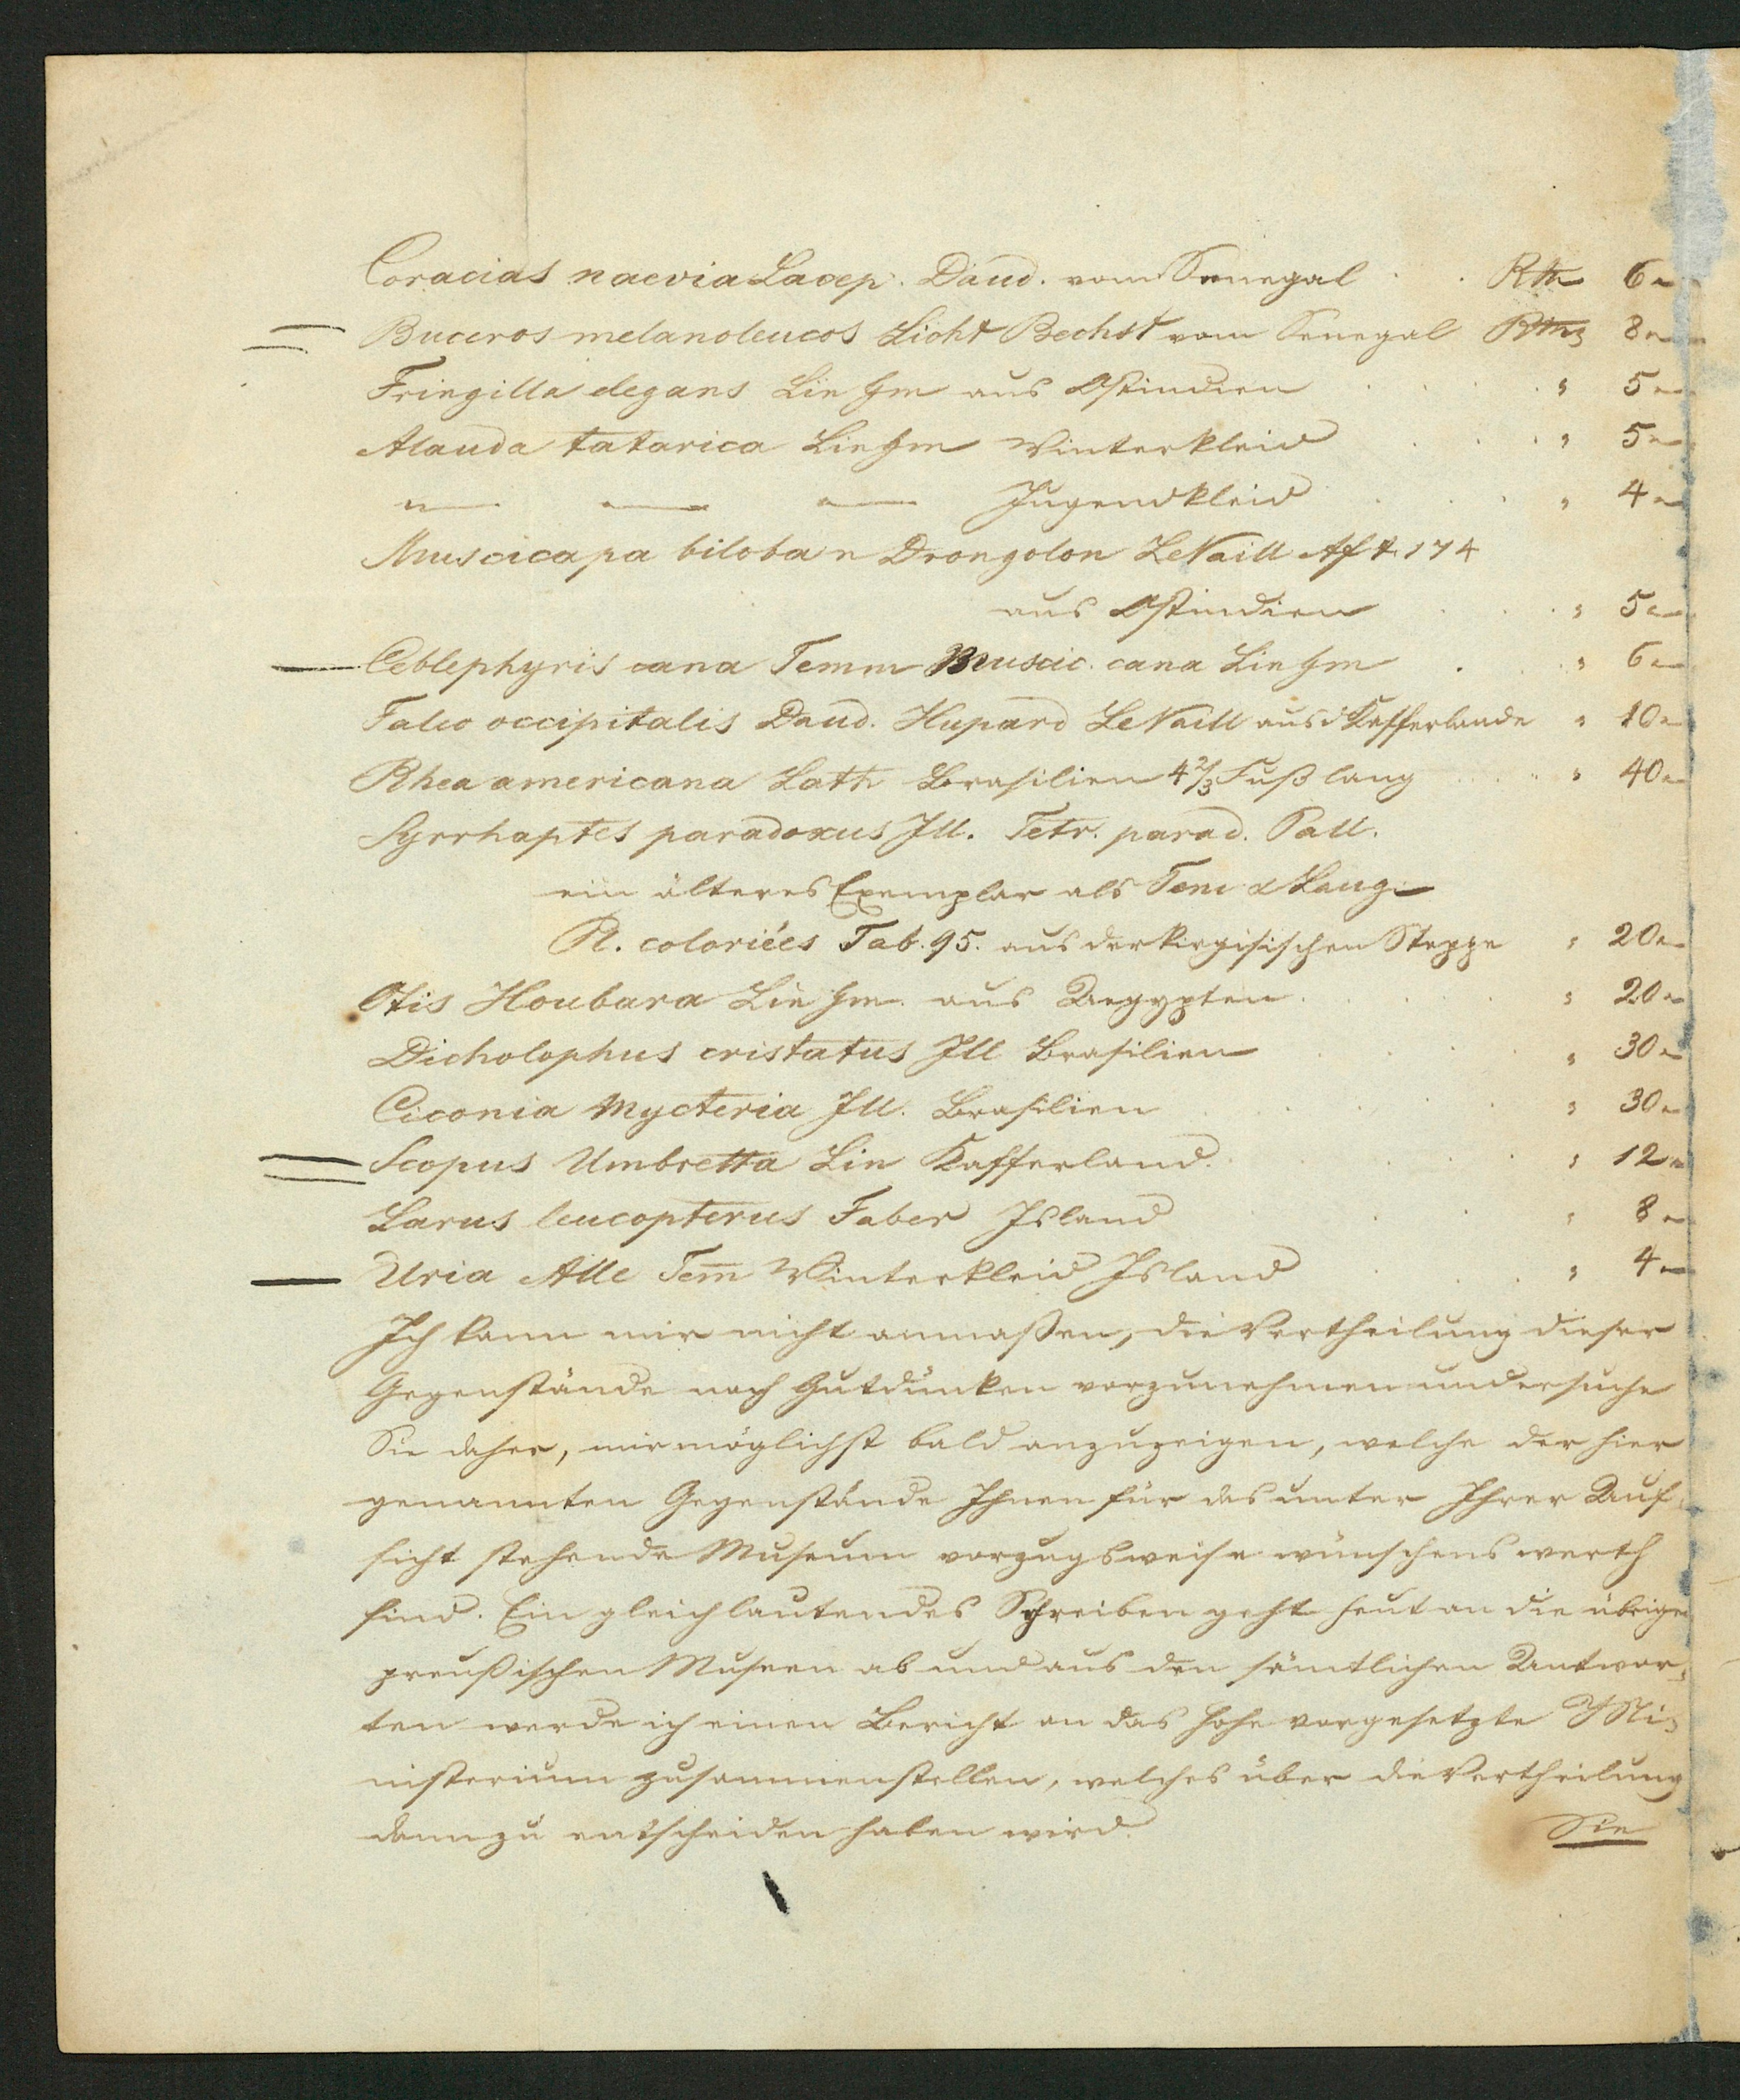 Coracias naevia Lacep. Daud. vom Senegal . . Rth 6 „
Buceros melanoleucos Licht Bechst vom Senegal 8 „
Fringilla elegans Lin Gm aus Ostindien . . . . „ 5 „
Alauda tatarica Lin Gm Winterkleid . . . „ 5 „
„ — „ — „ — Jugendkleid . . . „ 4 „
Muscicapa biloba n Drongolon LeVaill Af t. 174
aus Ostindien . . . „ 5 „
Ceblephyris cana Temm Muscic. cana Lin Gm . . „ 6 „
Falco occipitalis Daud. Hupard LeVaill aus d Kafferlande „ 10 „
Rhea americana Lath Brasilien 4 2/3 Fuß lang . . „ 40 „
Syrrhaptes paradoxus Ill. Tetr. parad. Pall.
ein älteres Exemplar als Tem & Laug
Pl. coloriées Tab. 95. aus der kirgisischen Steppe „ 20 „
Otis Houbara Lin Gm. aus Aegypten . . . . „ 20 „
Dicholophus cristatus Ill Brasilien . . . . „ 30 „
Ciconia Mycteria Ill. Brasilien . . . . „ 30 „
Scopus Umbretta Lin Kafferland. . . . „ 12 „
Larus leucopterus Faber Island . . . „ 8 „
Uria Alle Tem̄ Winterkleid Island . . . „ 4 „
Ich kann mir nicht anmaßen, die Vertheilung dieser
Gegenstände nach Gutdünken vorzunehmen und ersuche
Sie daher, mir möglichst bald anzuzeigen, welche der hier
genannten Gegenstände Ihnen für das unter Ihrer Auf-
sicht stehende Museum vorzugsweise wünschenswerth
sind. Ein gleichlautendes Schreiben geht heut an die übrigen
preußischen Museen ab und aus den sämtlichen Antwor-
ten werde ich einen Bericht an das hohe vorgesetzte Mi-
nisterium zusammenstellen, welches über die Vertheilung
dann zu entscheiden haben wird.
Sie